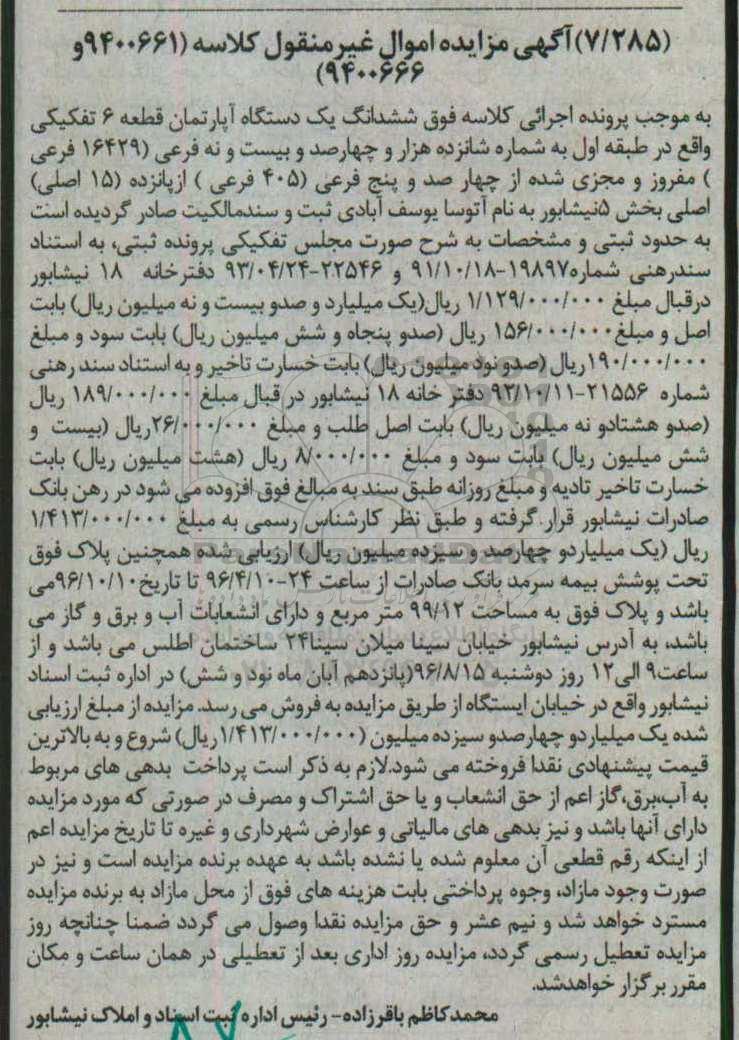 (۷/۲۸۵)آگهی مزایده اموال غیرمنقول کلاسه (۹۴۰۰۶۶۱و
۹۴۰۰۶۶۶)
به موجب پرونده اجرائی کلاسه فوق ششدانگ یک دستگاه آپارتمان قطعه ۶ تفکیکی
واقع در طبقه اول به شماره شانزده هزار و چهارصد و بیست و نه فرعی (۱۶۴۲۹ فرعی
) مفروز و مجزی شده از چهار صد و پنج فرعی (۴۰۵ فرعی ) ازپانزده (۱۵ اصلی)
اصلی بخش ۵نیشابور به نام آتوسا یوسف آبادی ثبت و سندمالکیت صادر گردیده است
به حدود ثبتی و مشخصات به شرح صورت مجلس تفکیکی پرونده ثبتی، به استناد
سندرهنی شماره۱۹۸۹۷-۹۱/۱۰/۱۸ و ۲۲۵۴۶-۹۳/۰۴/۲۴ دفترخانه ۱۸ نیشابور
درقبال مبلغ ۱/۱۲۹/۰۰۰/۰۰۰ ریال(یک میلیارد و صدو بیست و نه میلیون ریال) بابت
اصل و مبلغ۱۵۶/۰۰۰/۰۰۰ ریال (صدو پنجاه و شش میلیون ریال) بابت سود و مبلغ
۱۹۰/۰۰۰/۰۰۰ریال (صدو نود میلیون ریال) بابت خسارت تاخیر و به استناد سند رهنی
شماره ۲۱۵۵۶-۹۲/۱۰/۱۱ دفتر خانه ۱۸ نیشابور در قبال مبلغ ۱۸۹/۰۰۰/۰۰۰ ریال
(صدو هشتادو نه میلیون ریال) بابت اصل طلب و مبلغ ۲۶/۰۰۰/۰۰۰ریال (بیست و
شش میلیون ریال) بابت سود و مبلغ ۸/۰۰۰/۰۰۰ ریال (هشت میلیون ریال) بابت
خسارت تاخیر تادیه و مبلغ روزانه طبق سند به مبالغ فوق افزوده می شود در رهن بانک
صادرات نیشابور قرار گرفته و طبق نظر کارشناس رسمی به مبلغ ۱/۴۱۳/۰۰۰/۰۰۰
ریال (یک میلیاردو چهارصد و سیزده میلیون ریال) ارزیابی شده همچنین پلاک فوق
تحت پوشش بیمه سرمد بانک صادرات از ساعت ۲۴-۹۶/۴/۱۰ تا تاریخ۹۶/۱۰/۱۰می
باشد و پلاک فوق به مساحت ۹۹/۱۲ متر مربع و دارای انشعابات آب و برق و گاز می
باشد، به آدرس نیشابور خیابان سینا میلان سینا۲۴ ساختمان اطلس می باشد و از
ساعت۹ الی۱۲ روز دوشنبه ۹۶/۸/۱۵(پانزدهم آبان ماه نود و شش) در اداره ثبت اسناد
نیشابور واقع در خیابان ایستگاه از طریق مزایده به فروش می رسد. مزایده از مبلغ ارزیابی
شده یک میلیاردو چهارصدو سیزده میلیون (۱/۴۱۳/۰۰۰/۰۰۰ریال) شروع و به بالاترین
قیمت پیشنهادی نقدا فروخته می شود.لازم به ذکر است پرداخت بدهی های مربوط
به آب،برق،گاز اعم از حق انشعاب و یا حق اشتراک و مصرف در صورتی که مورد مزایده
دارای آنها باشد و نیز بدهی های مالیاتی و عوارض شهرداری و غیره تا تاریخ مزایده اعم
از اینکه رقم قطعی آن معلوم شده یا نشده باشد به عهده برنده مزایده است و نیز در
صورت وجود مازاد، وجوه پرداختی بابت هزینه های فوق از محل مازاد به برنده مزایده
مسترد خواهد شد و نیم عشر و حق مزایده نقدا وصول می گردد ضمنا چنانچه روز
مزایده تعطیل رسمی گردد، مزایده روز اداری بعد از تعطیلی در همان ساعت و مکان
مقرر برگزار خواهدشد.
محمدکاظم باقرزاده- رئیس اداره ثبت اسناد و املاک نیشابور